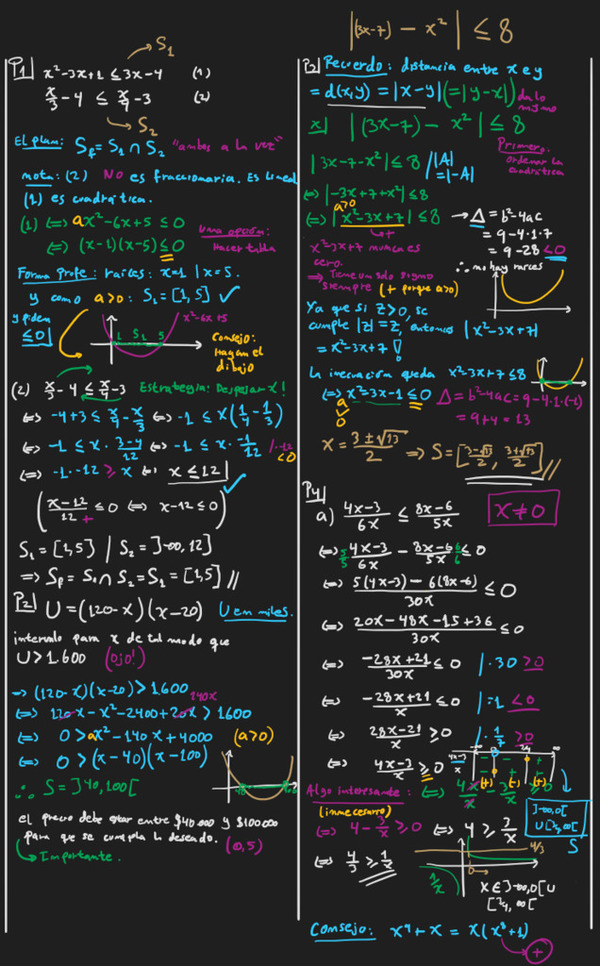 |(3x-7) - x²| ≤ 8
S₁
P1 x²-3x+1 ≤ 3x-4 (1)
x/3 - 4 ≤ x/4 - 3 (2)
S₂
El plan: Sf = S₁ ∩ S₂ "ambas a la vez"
nota: (2) No es fraccionaria. Es lineal
(1) es cuadrática.
(1) ⟺ ax²-6x+5 ≤ 0
⟺ (x-1)(x-5) ≤ 0
Una opción:
Hacer tabla
Forma profe: raíces: x=1 | x=5.
y como a>0: S₁ = [1,5] ✓
y piden
≤0
1 S₁ 5
x²-6x+5
Consejo:
Hagan el
dibujo
(2) x/3 - 4 ≤ x/4 - 3 Estrategia: Despejar x!
⟺ -4+3 ≤ x/4 - x/3 ⟺ -1 ≤ x(1/4 - 1/3)
⟺ -1 ≤ x · (3-4)/12 ⟺ -1 ≤ x · -1/12 /·-12 <0
⟺ -1·-12 ≥ x ⟺ x ≤ 12
((x-12)/12 ≤ 0 ⟺ x-12 ≤ 0) ✓
+
S₁ = [1,5] | S₂ = ]-∞,12]
⟹ Sf = S₁ ∩ S₂ = S₁ = [1,5] //
P2 U = (120-x)(x-20) U en miles.
intervalo para x de tal modo que
U > 1.600 (ojo!)
→ (120-x)(x-20) > 1.600
140x
⟺ 120x - x² - 2400 + 20x > 1600
⟺ 0 > ax² - 140x + 4000 (a>0)
⟺ 0 > (x-40)(x-100)
∴ S = ]40,100[
el precio debe estar entre $40.000 y $100.000
para que se cumpla lo deseado. (0,5)
Importante.
P3 Recuerdo: distancia entre x e y
= d(x,y) = |x-y| (= |y-x|) da lo
mismo
x| |(3x-7) - x²| ≤ 8
Primero:
ordenar la
cuadrática
|3x-7-x²| ≤ 8 /|A|
=|-A|
⟺ |-3x+7+x²| ≤ 8
a>0
⟺ |x²-3x+7| ≤ 8 → Δ = b²-4ac
+
= 9-4·1·7
= 9-28 <0
∴ no hay raíces
x²-3x+7 nunca es
cero.
⟹ Tiene un solo signo
siempre (+ porque a>0)
Ya que si z>0, se
cumple |z| = z, entonces |x²-3x+7|
= x²-3x+7!
La inecuación queda x²-3x+7 ≤ 8
⟺ x²-3x-1 ≤ 0 Δ = b²-4ac = 9-4·1·(-1)
= 9+4 = 13
a
∨
0
x = (3±√13)/2 ⟹ S = [(3-√13)/2, (3+√13)/2] //
P4
a) (4x-3)/6x ≤ (8x-6)/5x x≠0
⟺ 5/5 (4x-3)/6x - (8x-6)/5x 6/6 ≤ 0
⟺ (5(4x-3) - 6(8x-6))/30x ≤ 0
⟺ (20x-48x-15+36)/30x ≤ 0
⟺ (-28x+21)/30x ≤ 0 /·30 >0
⟺ (-28x+21)/x ≤ 0 /·-1 <0
⟺ (28x-21)/x ≥ 0 /·1/7 >0
⟺ (4x-3)/x ≥ 0
Algo interesante: ⟺ 4x/x - 3/x ≥ 0
(innecesario)
]-∞,0[
U [3/4,∞[
S
⟹ 4 - 3/x ≥ 0 ⟺ 4 ≥ 3/x
⟺ 4/3 ≥ 1/x
4/3
0
1/x
x ∈ ]-∞,0[ U
[3/4,∞[
Consejo: x⁴+x = x(x³+1)
+